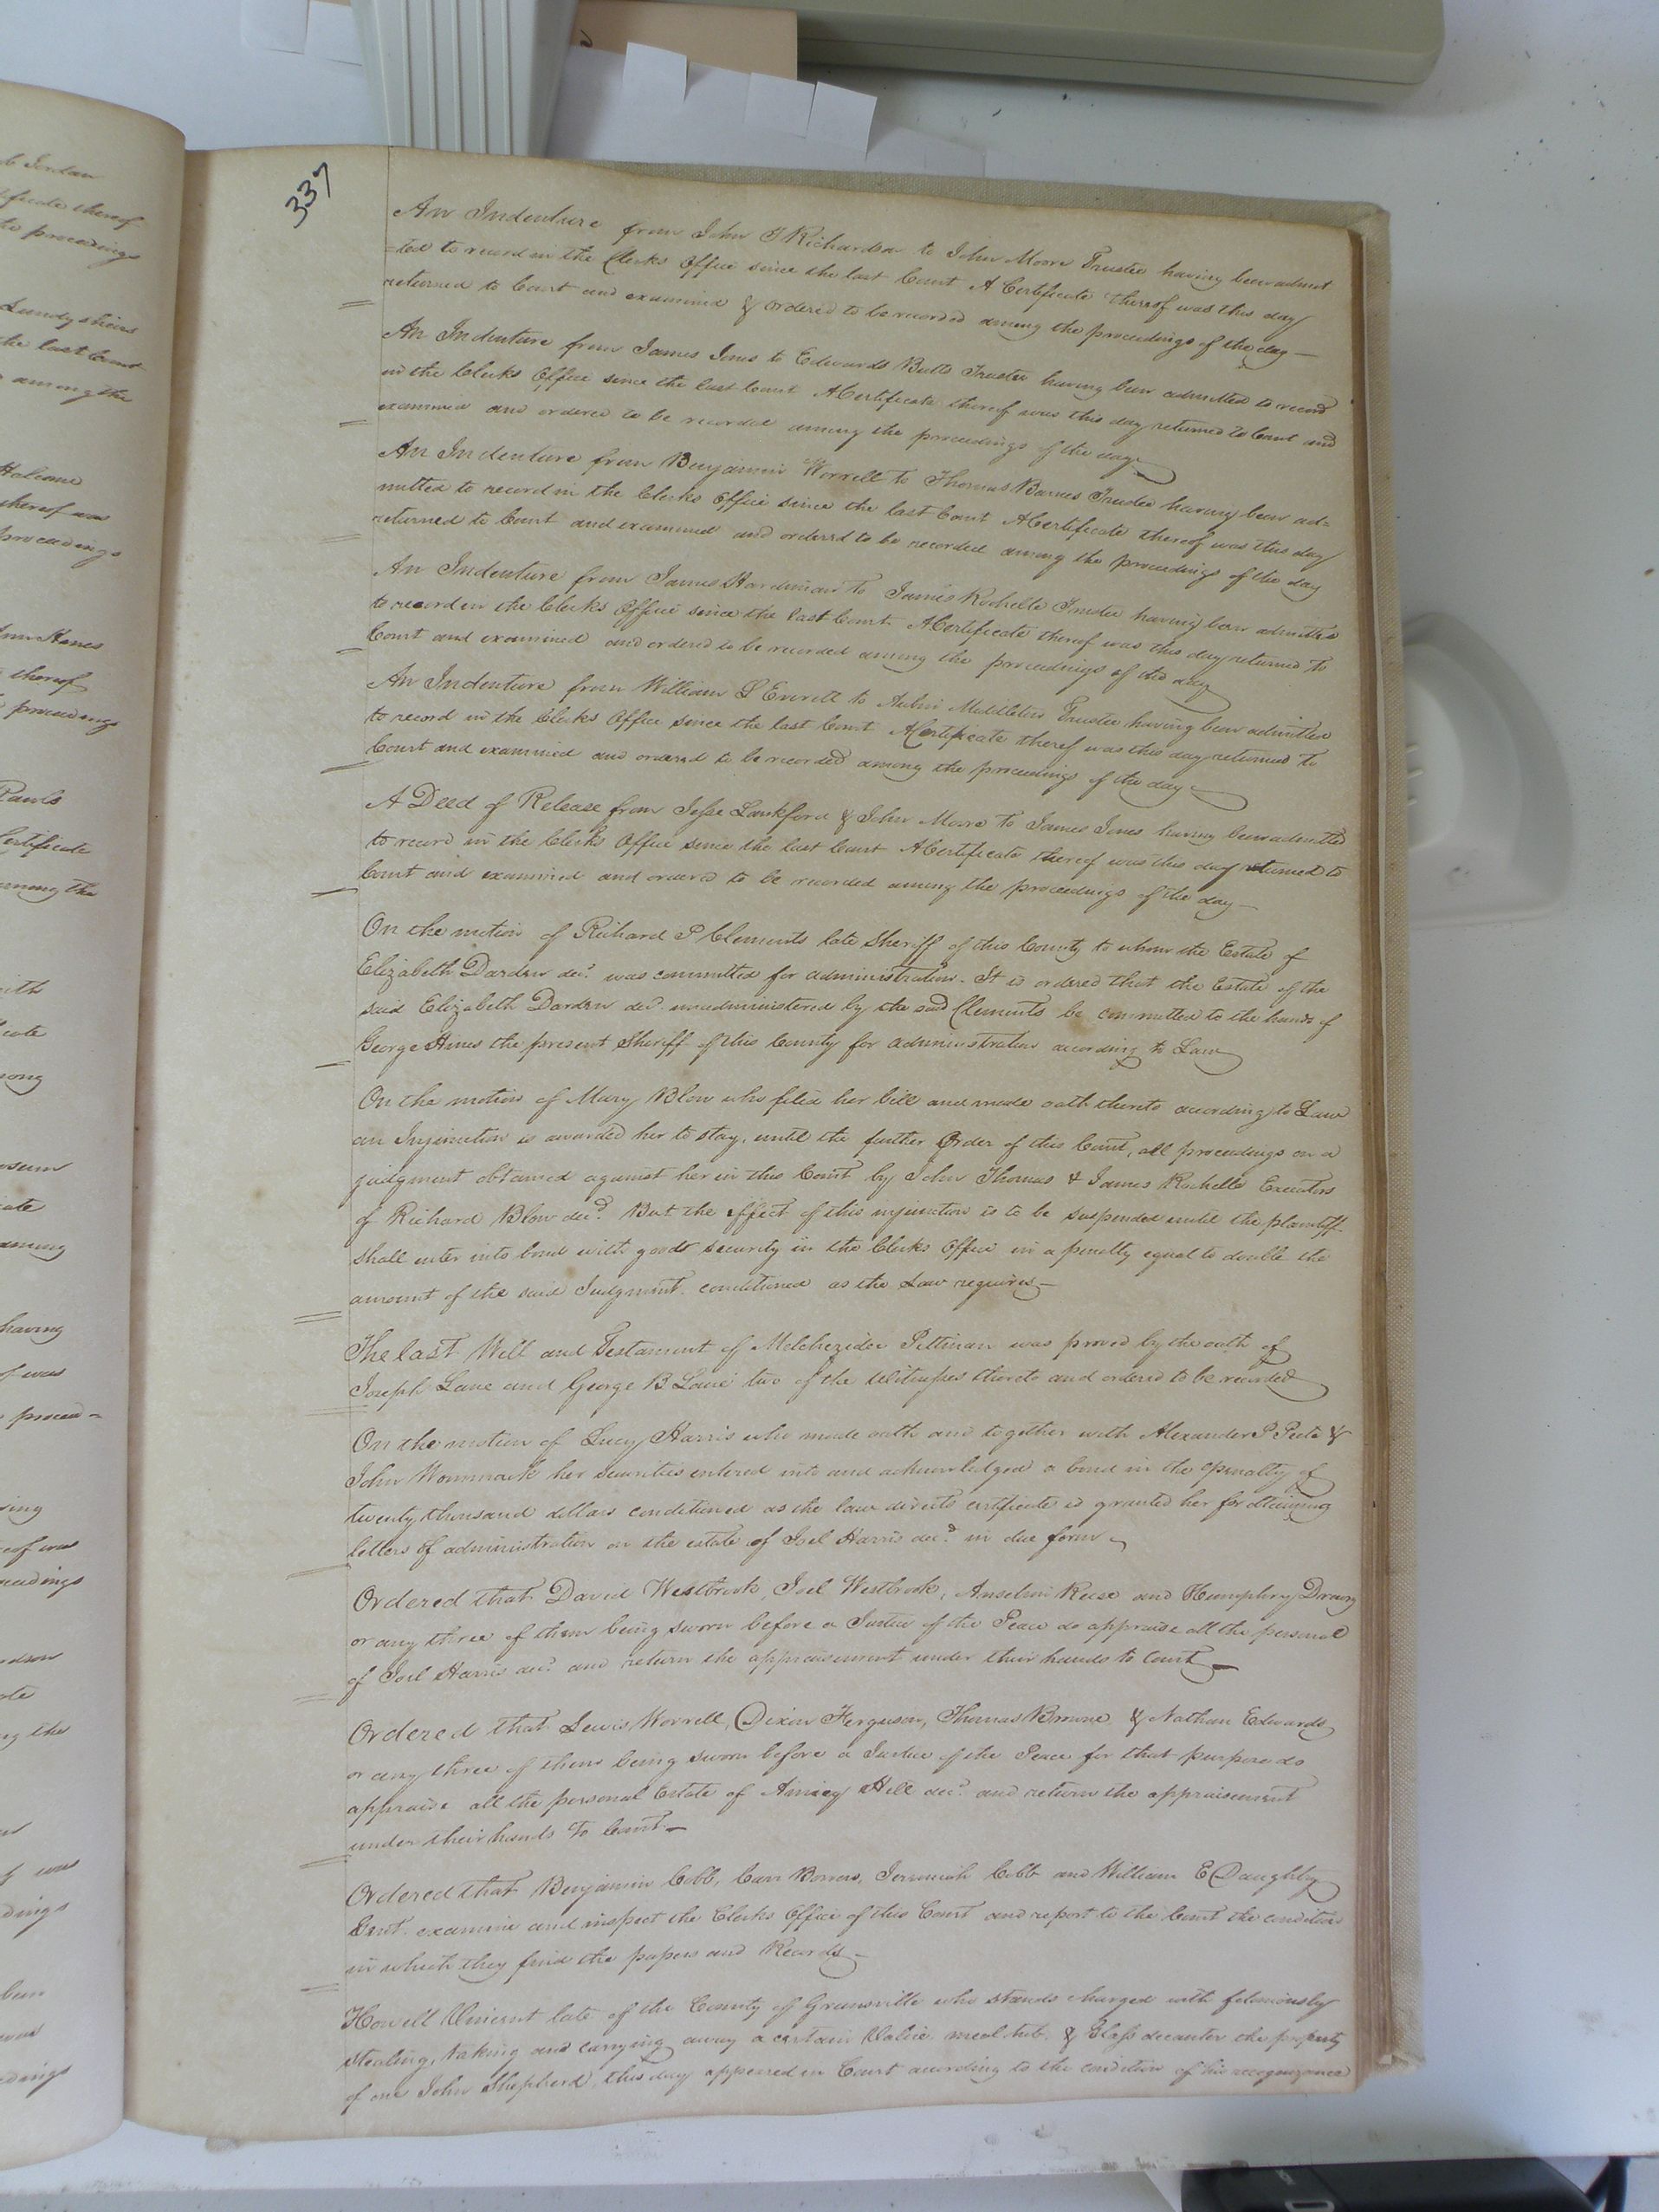 337
An Indenture from John T Richardson to John Moore Trustee having been admit
=ted to record in the Clerks Office since the last Court A Certificate thereof was this day
returned to Court and examined & ordered to be recorded among the proceedings of the day —
An Indenture from James Jones to Edwards Butts Trustee having been admitted to record
in the Clerks Office since the last Court A Certificate thereof was this day returned to Court and
examined and ordered to be recorded among the proceedings of the day
An Indenture from Benjamin Worrell to Thomas Barnes Trustee having been ad=
mitted to record in the Clerks Office since the last Court A Certificate thereof was this day
returned to Court and examined and ordered to be recorded among the proceedings of the day
An Indenture from James Hardiman to James Rochelle Trustee having been admitted
to record in the Clerks Office since the last Court A Certificate thereof was this day returned to
Court and examined and ordered to be recorded among the proceedings of the day
An Indenture from William L Everett to Middleton Trustee having been admitted
to record in the Clerks Office since the last Court A Certificate thereof was this day returned to
Court and examined and ordered to be recorded among the proceedings of the day
A Deed of Release from Jesse Lankford & John Moore to James Jones having been admitted
to record in the Clerks Office since the last Court A Certificate thereof was this day returned to
Court and examined and ordered to be recorded among the proceedings of the day —
On the motion of Richard P Clements late Sheriff of this County to whom the Estate of
Elizabeth Darden decd. was committed for administration. It is ordered that the Estate of the
said Elizabeth Darden decd. unadministered by the said Clements be committed to the hands of
George Ames the present Sheriff of this County for administration according to Law
On the motion of Mary Blow who filed her bill and made oath thereto according to Law
an Injunction is awarded her to stay, until the further Order of this Court, all proceedings on a
judgment obtained against her in this Court by John Thomas & James Rochelle Executors
of Richard Blow decd. But the effect of this injunction is to be suspended until the plaintiff
shall enter into bond with good security in the Clerks Office in a penalty equal to double the
amount of the said Judgment. conditioned as the Law requires —
The last Will and Testament of Melchezidec Pittman was proved by the oath of
Joseph Lane and George B Lane two of the Witnesses thereto and ordered to be recorded
On the motion of Lucy Harris who made oath and together with Alexander P Peete &
John Wommack her securities entered into and acknowledged a bond in the penalty of
twenty thousand dollars conditioned as the law directs certificate is granted her for obtaining
letters of administration on the estate of Joel Harris decd. in due form
Ordered that David Westbrook, Joel Westbrook, Anselm Reese and Humphry Drewry
or any three of them being sworn before a Justice of the Peace do appraise all the personal
of Joel Harris decd. and return the appraisement under their hands to Court —
Ordered that Lewis Worrell, Dixon Ferguson, Thomas Browne & Nathan Edwards
or any three of them being sworn before a Justice of the Peace for that purpose do
appraise all the personal Estate of Amicy Hill decd. and return the appraisement
under their hands to Court —
Ordered that Benjamin Cobb, Carr Bowers, Jeremiah Cobb and William E Daughtry
Gent. examine and inspect the Clerks Office of this Court and report to the Court the condition
in which they find the papers and Records —
Howell Vincent late of the County of Greensville who stands charged with feloniously
stealing, taking and carrying away a certain Valice meal tub, & Glass decanter the property
of one John Shepherd, this day appeared in Court according to the condition of his recognizance